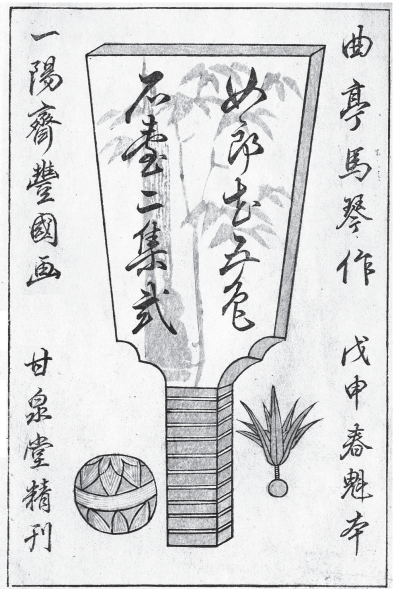 曲亭馬琴作 戊申春魁本
女郎花五色
石臺二集弐
一陽齋豐國画 甘泉堂精刊